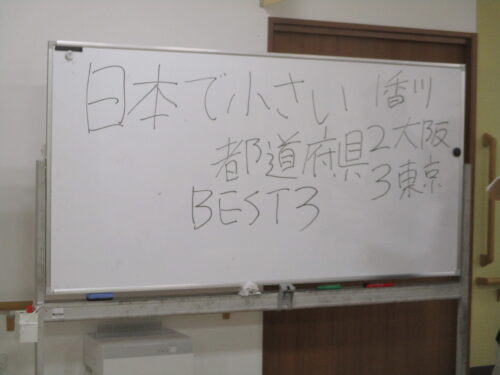 日本で小さい
都道府県
BEST3
1香川
2大阪
3東京